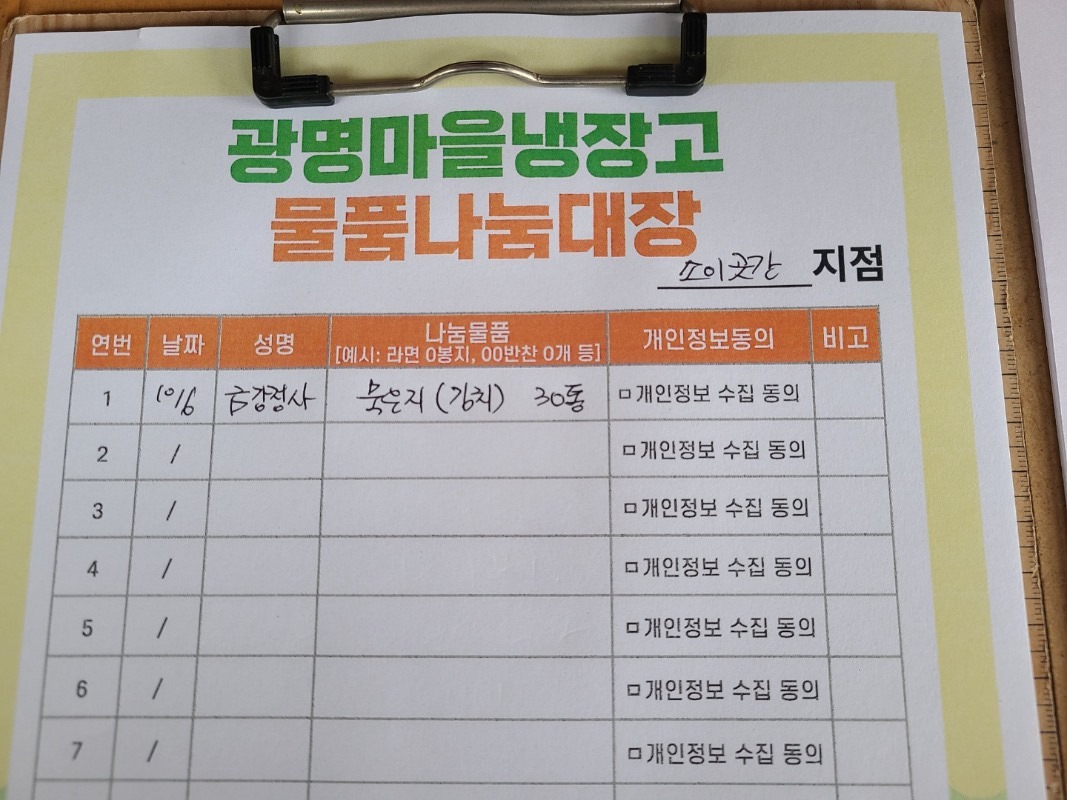 광명마을냉장고
물품나눔대장
소이곳간 지점
연번 날짜 성명 나눔물품 개인정보동의 비고
[예시: 라면 0봉지, 00반찬 0개 등]
1 10/6 금강정사 묵은지 (김치) 30통 개인정보 수집 동의
2 / 개인정보 수집 동의
3 / 개인정보 수집 동의
4 / 개인정보 수집 동의
5 / 개인정보 수집 동의
6 / 개인정보 수집 동의
7 / 개인정보 수집 동의